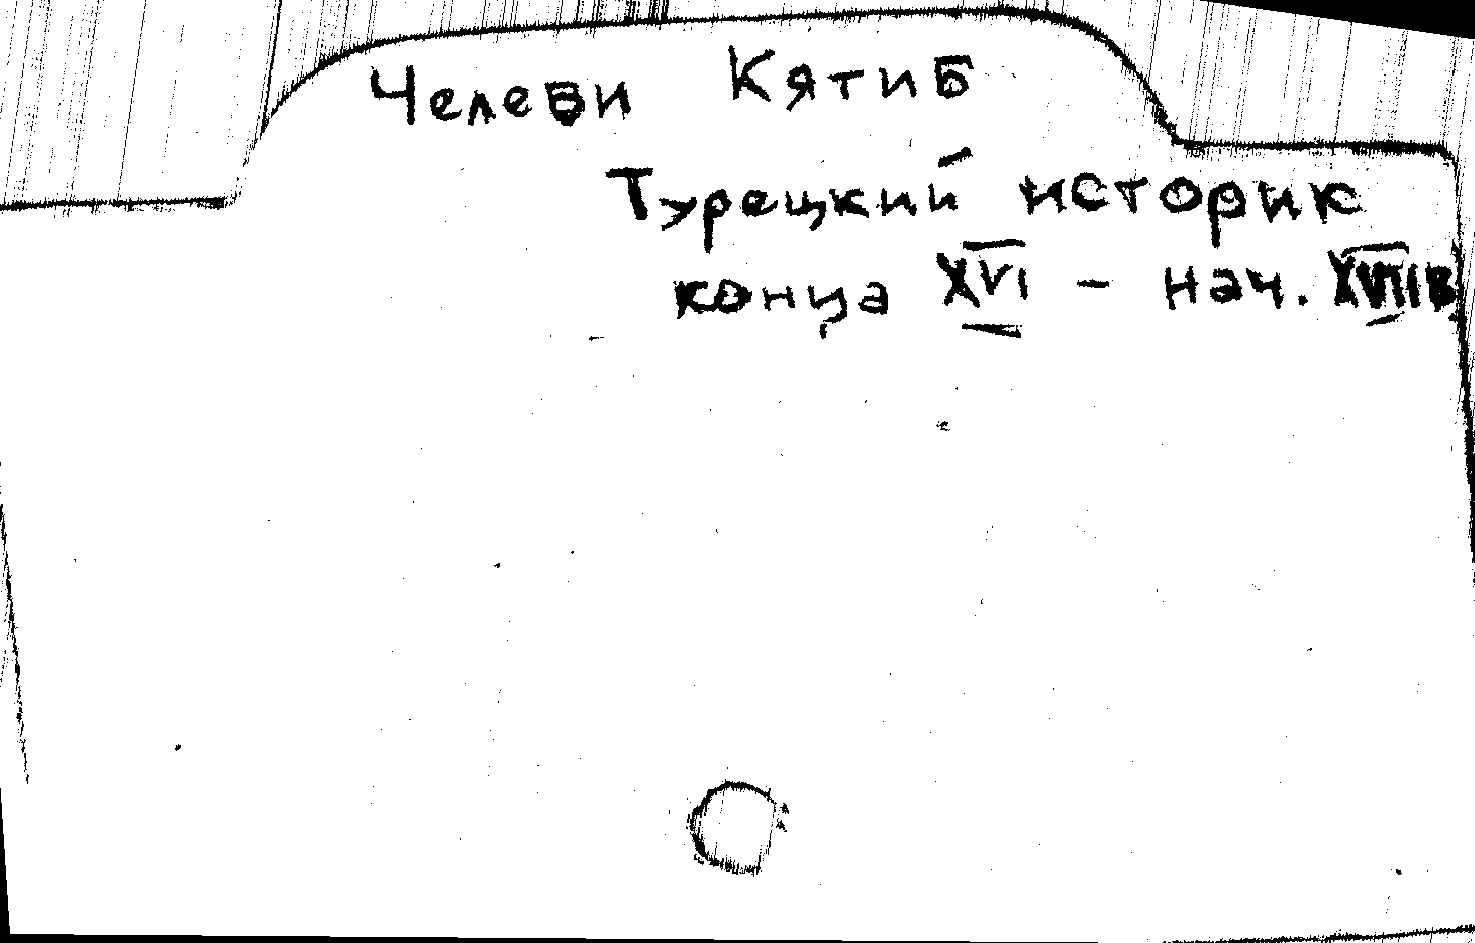 Челеби Кятиб
Турецкий историк
конца XVI – нач. XVIIв